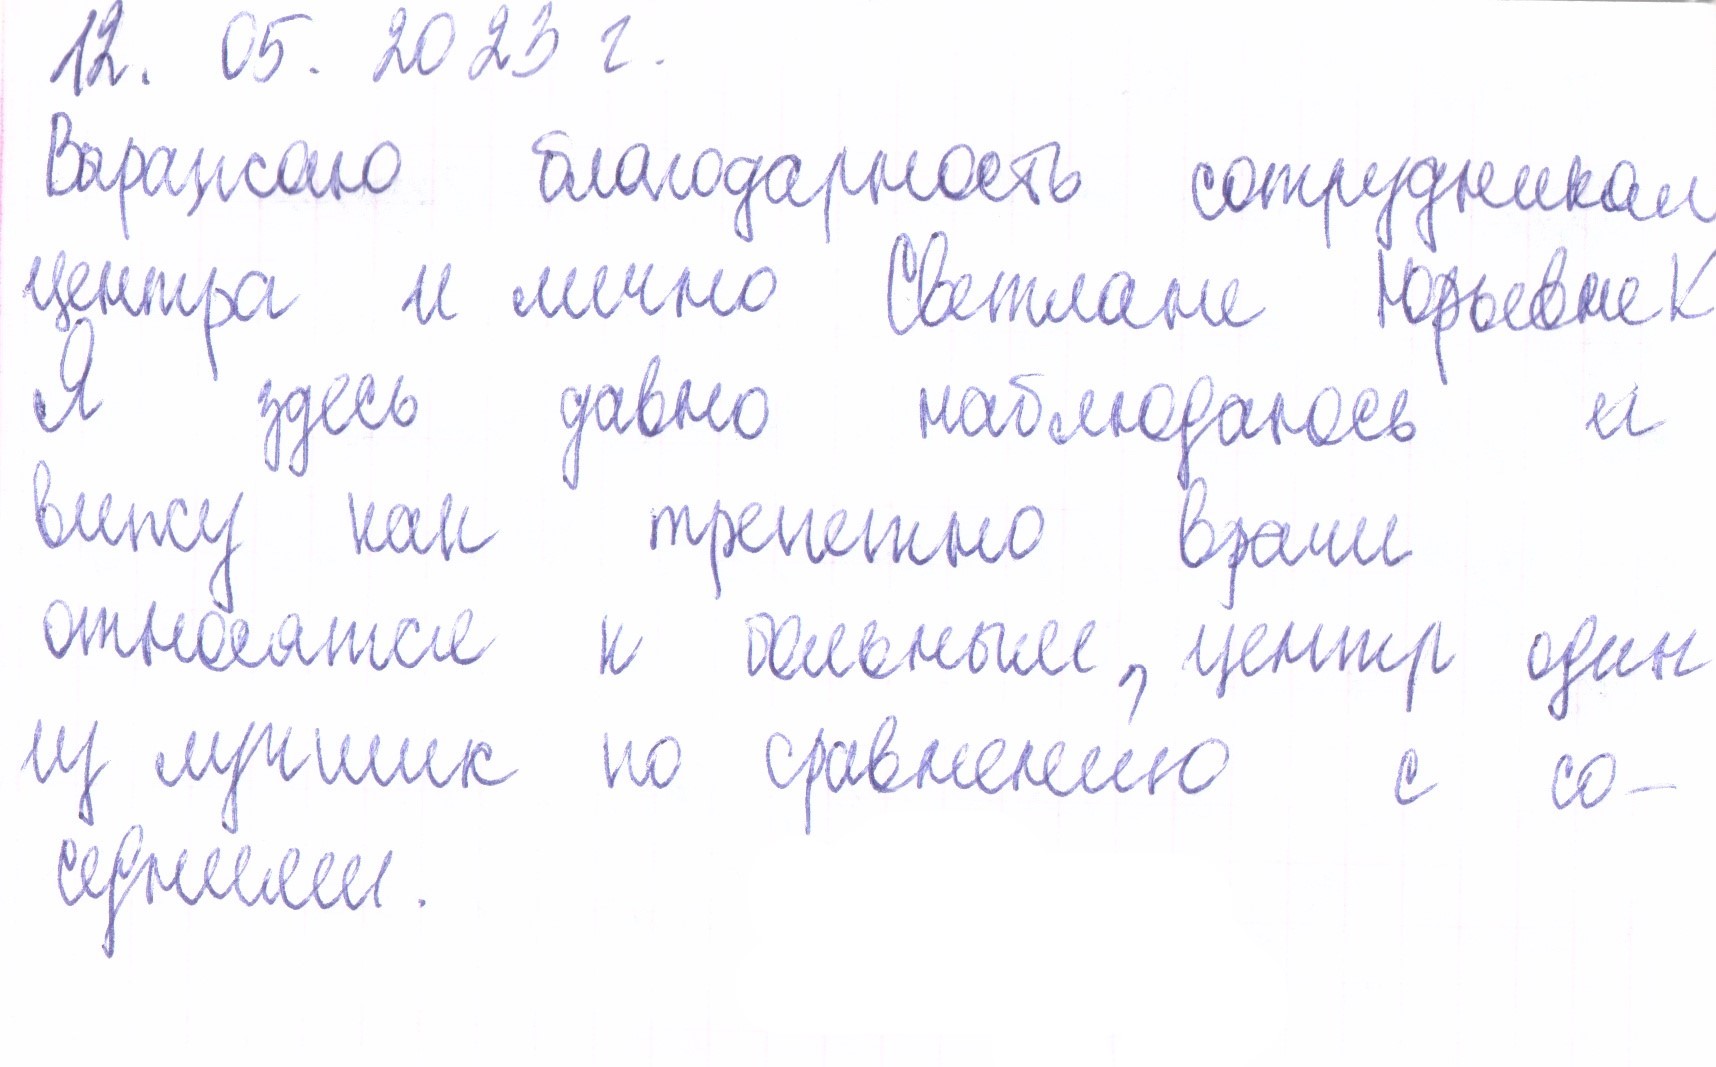 12. 05. 2023 г.
Выражаю благодарность сотрудникам
центра и лично Светлане Юрьевне К
Я здесь давно наблюдаюсь и
вижу как трепетно врачи
относятся к больным, центр один
из лучших по сравнению с со-
седними.